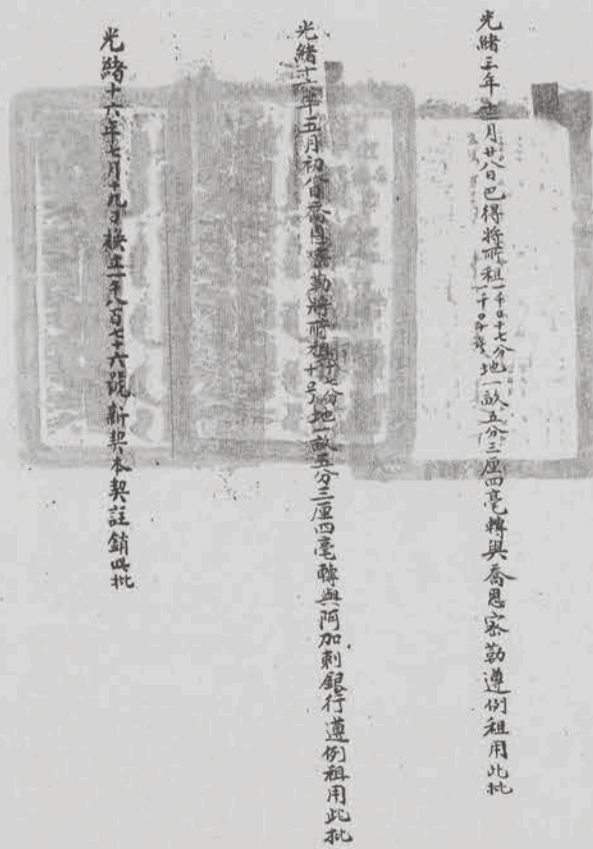 光緒三年十二月廿八日巴得將所租一千〇十七分地一畝五分三厘四毫轉與喬恩密勒遵例租用此批
光緒十六年五月初 日喬恩密勒將所租 十七分地一畝五分三厘四毫轉與阿加剌銀行遵例租用此批
光緒十六年七月十九日換立一千八百七十六號新契本契註銷此批